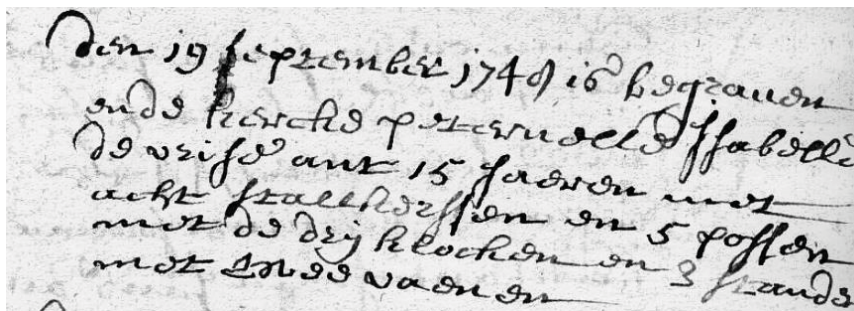 den 19 september 1749 is begraven
en de kercke peternelle ssabelle
de vrise aut 15 jaeren met
acht stallkerssen en 5 possen
met de drij klocken en 3 stande
met twee vaenen